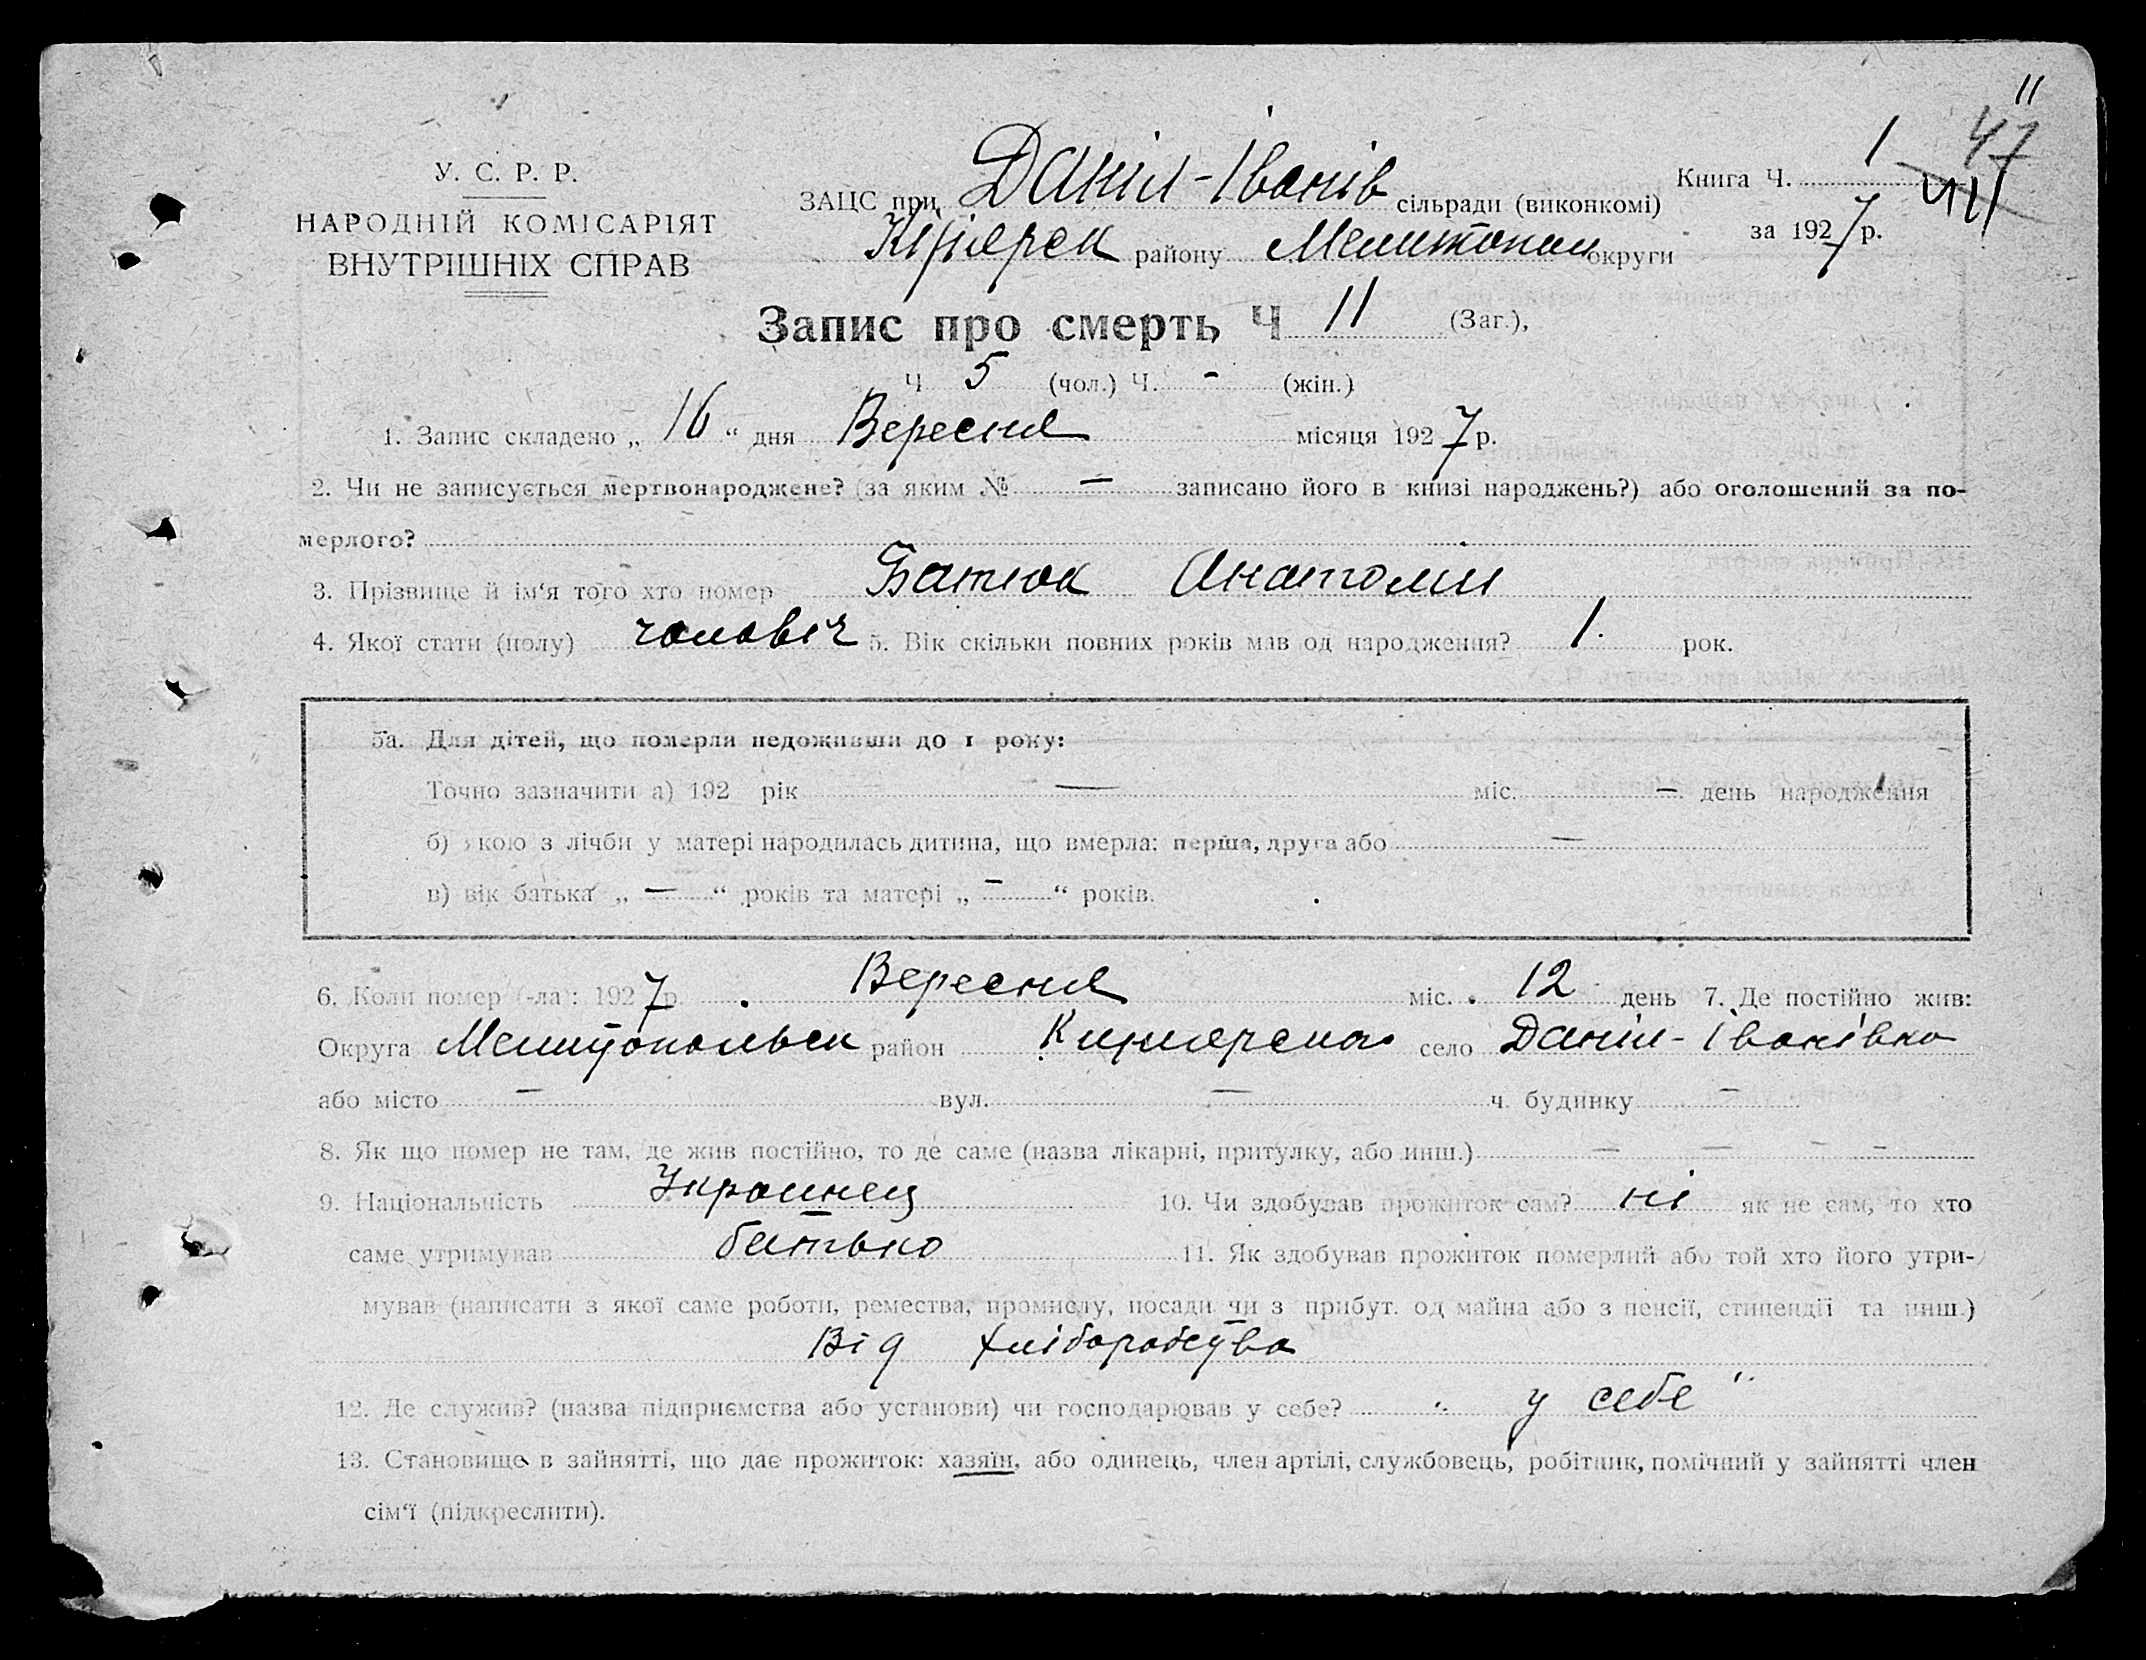 11
47
У. С. Р. Р.
НАРОДНІЙ КОМІСАРІЯТ
ВНУТРІШНІХ СПРАВ
ЗАЦС при Даніл-Іванів сільради (виконкомі)
району Мелитопол округи
Книга Ч. 1
за 1927 р.
Запис про смерть Ч 11 (Заг.),
Ч 5 (чол.) Ч. - (жін.)
1. Запис складено „ 16 “ дня Вересня місяця 1927 р.
2. Чи не записується мертвонароджене? (за яким № — записано його в книзі народжень?) або оголошений за по-
мерлого?
3. Прізвище й ім'я того хто помер Батюк Анатолій
4. Якої стати (полу) чоловіч 5. Вік скільки повних років мав од народження? 1. рок.
5а. Для дітей, що померли недоживши до 1 року:
Точно зазначити а) 192 рік — міс. — день народження
б) якою з лічби у матері народилась дитина, що вмерла: перша, друга або —
в) вік батька „ — “ років та матері „ — “ років.
6. Коли помер (-ла): 1927 р. Вересня міс. 12 день 7. Де постійно жив:
Округа Мелітопольськ район село Даніл-Іванівка
або місто — вул. — ч. будинку —
8. Як що помер не там, де жив постійно, то де саме (назва лікарні, притулку, або инш.) — — - -
9. Національність Украинец 10. Чи здобував прожиток сам? ні як не сам, то хто
саме утримував батько 11. Як здобував прожиток померлий або той хто його утри-
мував (написати з якої саме роботи, ремества, промислу, посади чи з прибут. од майна або з пенсії, стипендії та инш.)
Від хліборобства
12. Де служив? (назва підприємства або установи) чи господарював у себе? „ у себе “
13. Становище в зайнятті, що дає прожиток: хазяїн, або одинець, член артілі, службовець, робітник, помічний у зайнятті член
сім'ї (підкреслити).